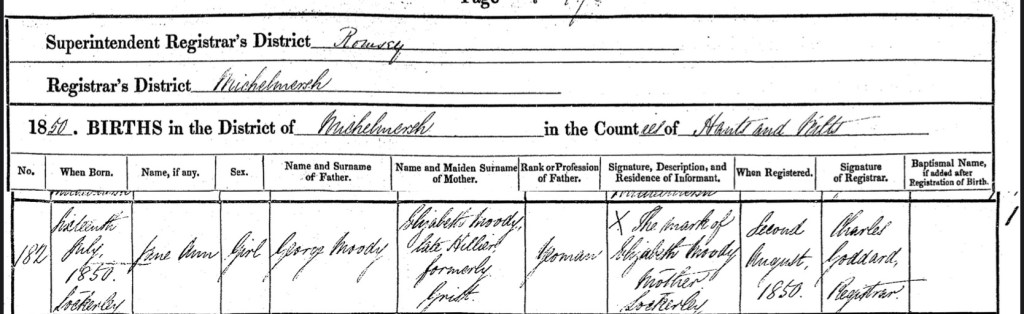 Page
Superintendent Registrar's District Romsey
Registrar's District Michelmersh
1850. BIRTHS in the District of Michelmersh in the Counties of Hants and Wilts
No. When Born. Name, if any. Sex. Name and Surname of Father. Name and Maiden Surname of Mother. Rank or Profession of Father. Signature, Description, and Residence of Informant. When Registered. Signature of Registrar. Baptismal Name, if added after Registration of Birth.
182
Sixteenth
July,
1850.
Lockerley
Jane Ann
Girl
George Moody
Elizabeth Moody,
late Hillier,
formerly
Grist.
Yeoman
X The mark of
Elizabeth Moody
Mother
Lockerley
Second
August,
1850.
Charles
Goddard,
Registrar.